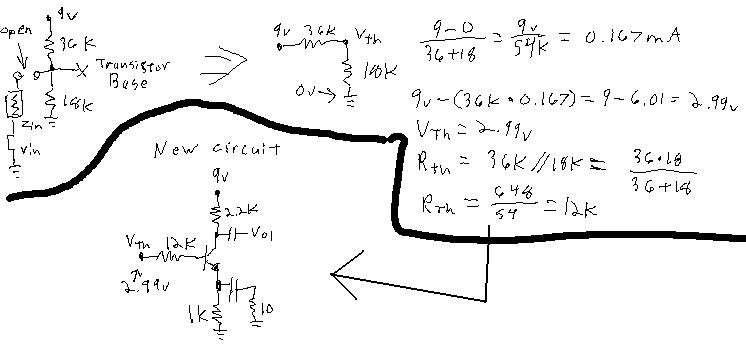 9v
open
36K
X Transistor
Base
18K
Zin
Vin
9v 36K Vth
18K
0v
9-0 / 36+18 = 9v / 54K = 0.167mA
9v-(36K•0.167)=9-6.01=2.99v
VTh=2.99v
Rth = 36K//18K = 36•18 / 36+18
RTh = 648 / 54 = 12K
New circuit
9v
2.2K
Vo1
VTh 12K
2.99v
1K
10